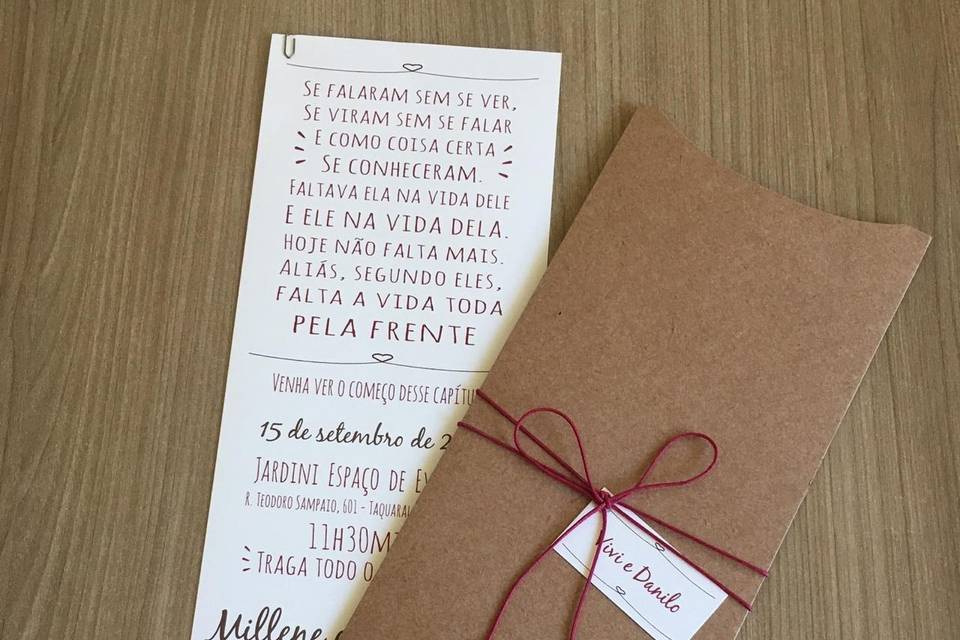 SE FALARAM SEM SE VER,
SE VIRAM SEM SE FALAR
E COMO COISA CERTA
SE CONHECERAM.
FALTAVA ELA NA VIDA DELE
E ELE NA VIDA DELA.
HOJE NÃO FALTA MAIS.
ALIÁS, SEGUNDO ELES,
FALTA A VIDA TODA
PELA FRENTE
VENHA VER O COMEÇO DESSE
15 de setembro de
JARDINI ESPAÇO DE
R. TEODORO SAMPAIO, 601 -
11H30M
TRAGA TODO O
Millene
Vivi e Danilo